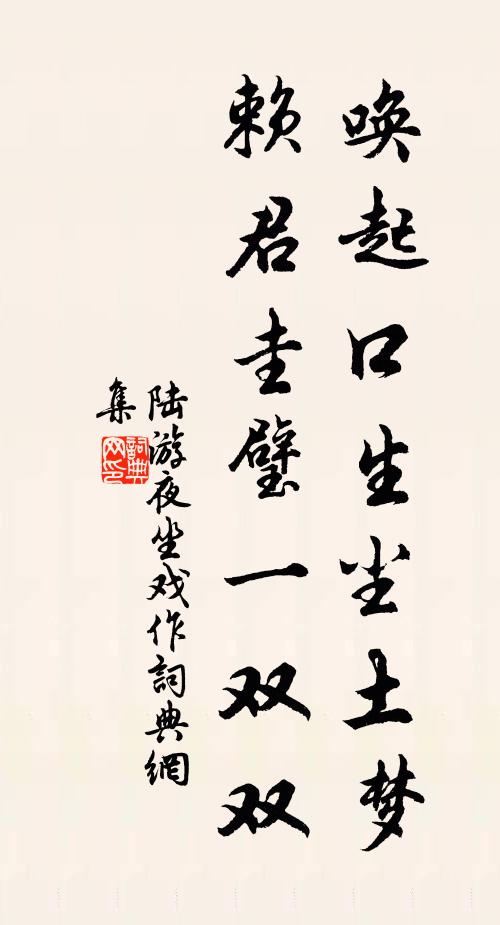 唤起口生尘土梦
赖君圭璧一双双
陆游夜坐戏作詞典網
集
詞典网印